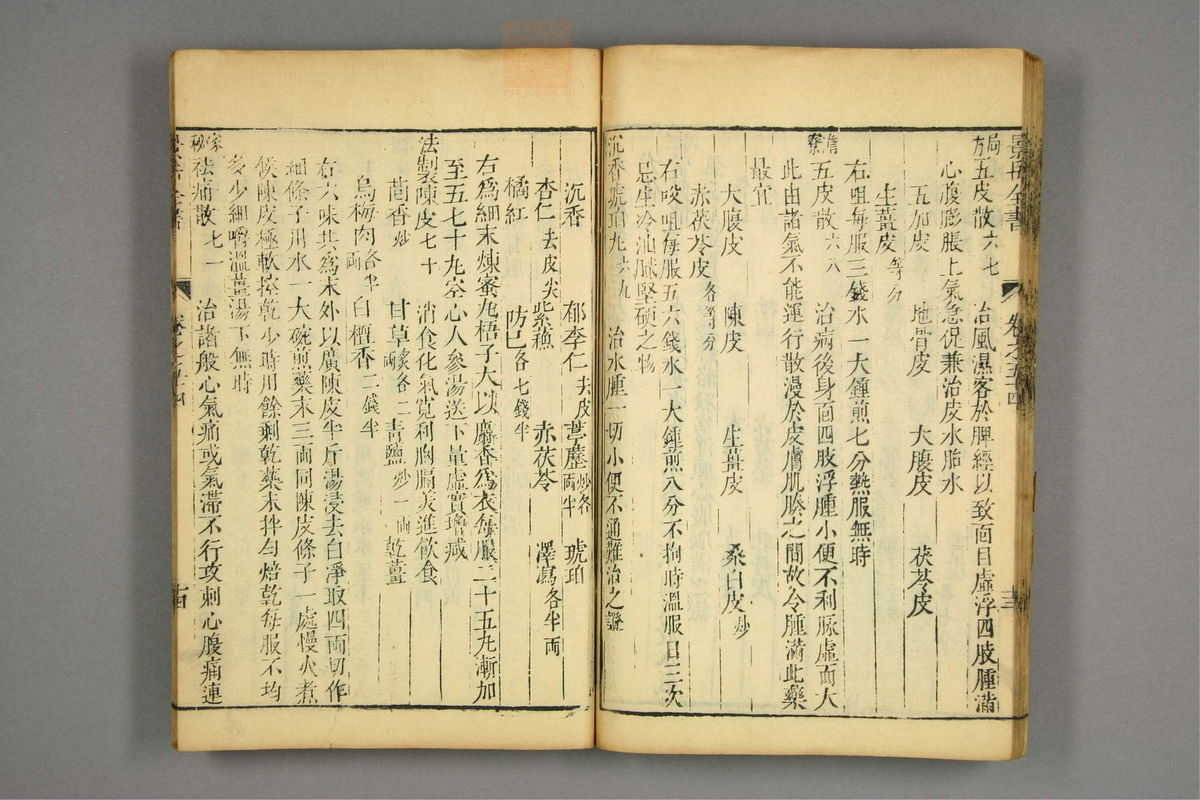 局方五皮散六七　治風濕客於脾經以致面目虛浮四肢腫滿
心腹膨脹上氣急促兼治皮水胎水
五加皮　地骨皮　大腹皮　茯苓皮
生薑皮等分
右咀每服三錢水一大鍾煎七分熱服無時
澹寮五皮散六八　治病後身面四肢浮腫小便不利脉虛而大
此由諸氣不能運行散漫於皮膚肌腠之間故令腫滿此藥
最宜
大腹皮　陳皮　生薑皮　桑白皮炒
赤茯苓皮各等分
右㕮咀每服五六錢水一大鍾煎八分不拘時溫服日三次
忌生冷油膩堅硬之物
沉香琥珀丸六九　治水腫一切小便不通難治之證
景岳全書　卷之五十四　十三
沉香　郁李仁去皮　葶藶炒各一兩半　琥珀
杏仁去皮尖　紫蘇　赤茯苓　澤瀉各半兩
橘紅　防己各七錢半
右爲細末煉蜜丸梧子大以麝香爲衣每服二十五丸漸加
至五七十丸空心人參湯送下量虛實增减
法製陳皮七十　消食化氣寬利胸膈美進飲食
茴香炒　甘草炙各二兩　青鹽炒一兩　乾薑
烏梅肉各半兩　白檀香二錢半
右六味共爲末外以廣陳皮半斤湯浸去白淨取四兩切作
細條子用水一大碗煎藥末三兩同陳皮條子一處慢火煮
候陳皮極軟控乾少時用餘剩乾藥末拌勻焙乾每服不均
多少細嚼溫薑湯下無時
家秘祛痛散七一　治諸般心氣痛或氣滯不行攻刺心腹痛連
景岳全書　卷之五十四　十四